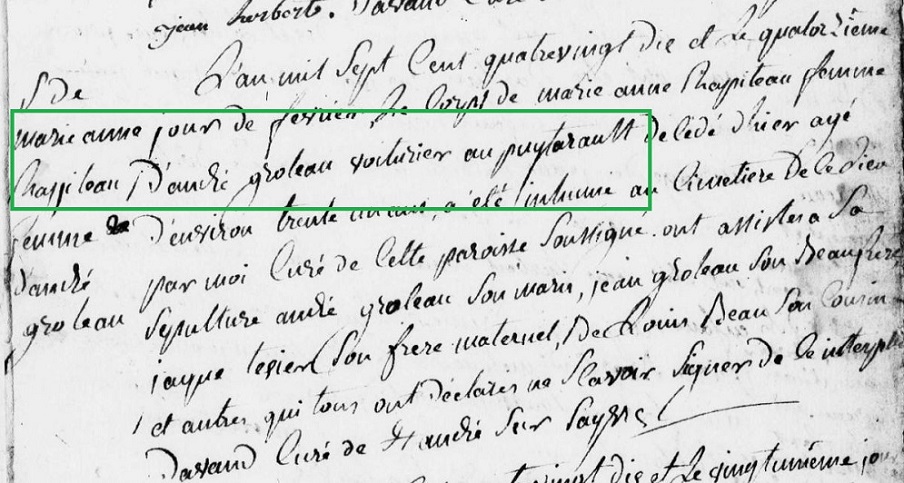 jean herberts. Davaud Curé
S. de
marie anne
Chappiteau
femme
d'andré
groleau
L'an mil Sept Cent quatrevingt dix et le quatorzieme
jour de fevrier, le Corps de marie anne Chappiteau femme
D'andré groleau voiturier au puytarault decedé d'hier agé
d'environ trente ans, a été inhumé au Cimetiere De Ce Lieu
par moi Curé de Cette paroisse Soussigné. ont assistes a Sa
Sepulture andré groleau Son mari, jean groleau Son Beaufrere
jaque texier Son frere maternel, De Louis Beau Son Cousin
et autres qui tous ont déclarés ne Scavoir Signer de ce interpellé
Davaud Curé de St andré Sur Sayvre
vingt dix et le vingtunieme jo